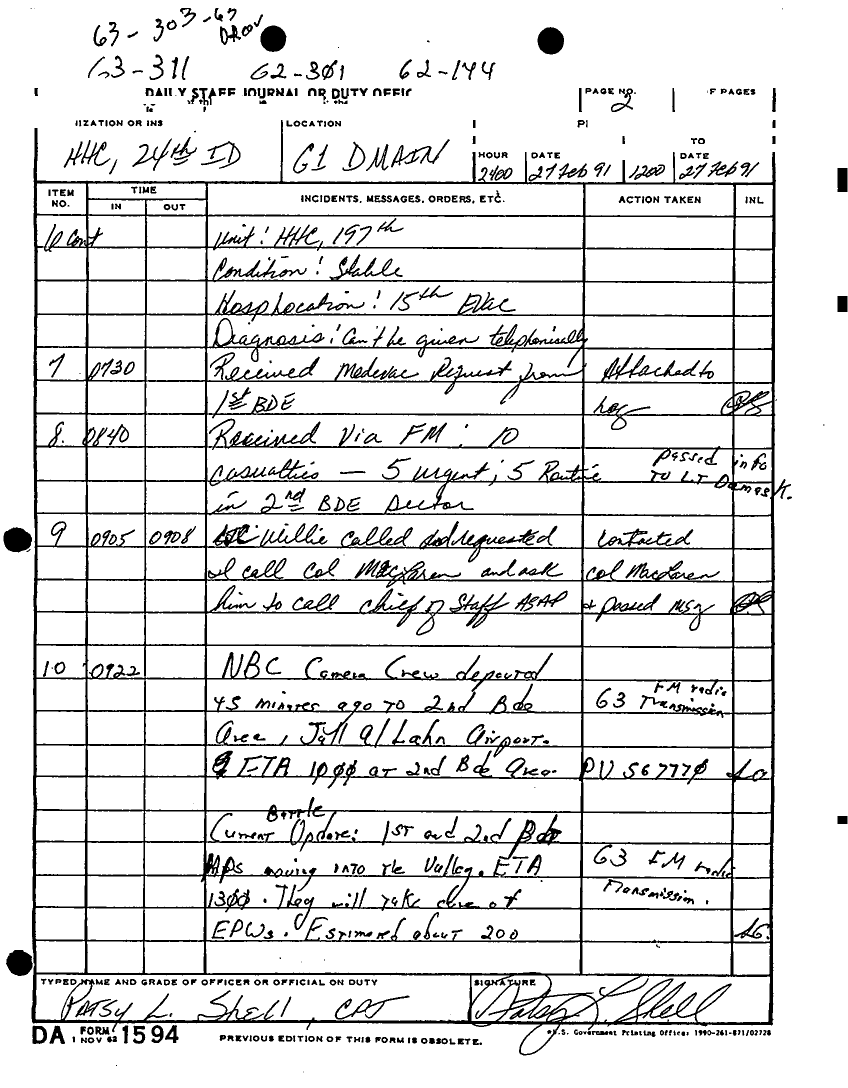 63-303-63
63-311 62-301 62-144
DAILY STAFF JOURNAL OR DUTY OFFIC
PAGE NO. 2
F PAGES
IZATION OR INS
HHC, 24th ID
LOCATION
G1 DMAIN
PI
TO
HOUR 2400
DATE 27 Feb 91
1200
DATE 27 Feb 91
ITEM NO.
TIME
IN OUT
INCIDENTS, MESSAGES, ORDERS, ETC.
ACTION TAKEN
INL
6 Cont Unit: HHC, 197th
Condition: Stable
Hosp location: 15th Evac
Diagnosis: Can't be given telephonically
7 0730 Received Medevac Request from Attached to
1st BDE log
8. 0840 Received Via FM: 10
casualties — 5 urgent; 5 Routine passed info
in 2nd BDE Sector TO LT Damask.
9 0905 0908 Willie called and requested Contacted
I call Col MacLaren and ask Col MacLaren
him to call chief of Staff ASAP + passed msg
10 0922 NBC Camera Crew departed
45 minutes ago TO 2nd Bde G3 FM radio Transmission
Area, Jall al Lahn Airport.
ETA 1000 at 2nd Bde Area. PU 567770
Current Battle Update: 1ST and 2nd Bde
MPs moving INTO the Valley. ETA G3 FM radio
1300. They will take care of Transmission.
EPWs. Estimated about 200
TYPED NAME AND GRADE OF OFFICER OR OFFICIAL ON DUTY
PATSY L. Shell, CPT
SIGNATURE
Patsy L Shell
DA FORM 1594
1 NOV 62
PREVIOUS EDITION OF THIS FORM IS OBSOLETE.
U.S. Government Printing Office: 1990-261-871/02728